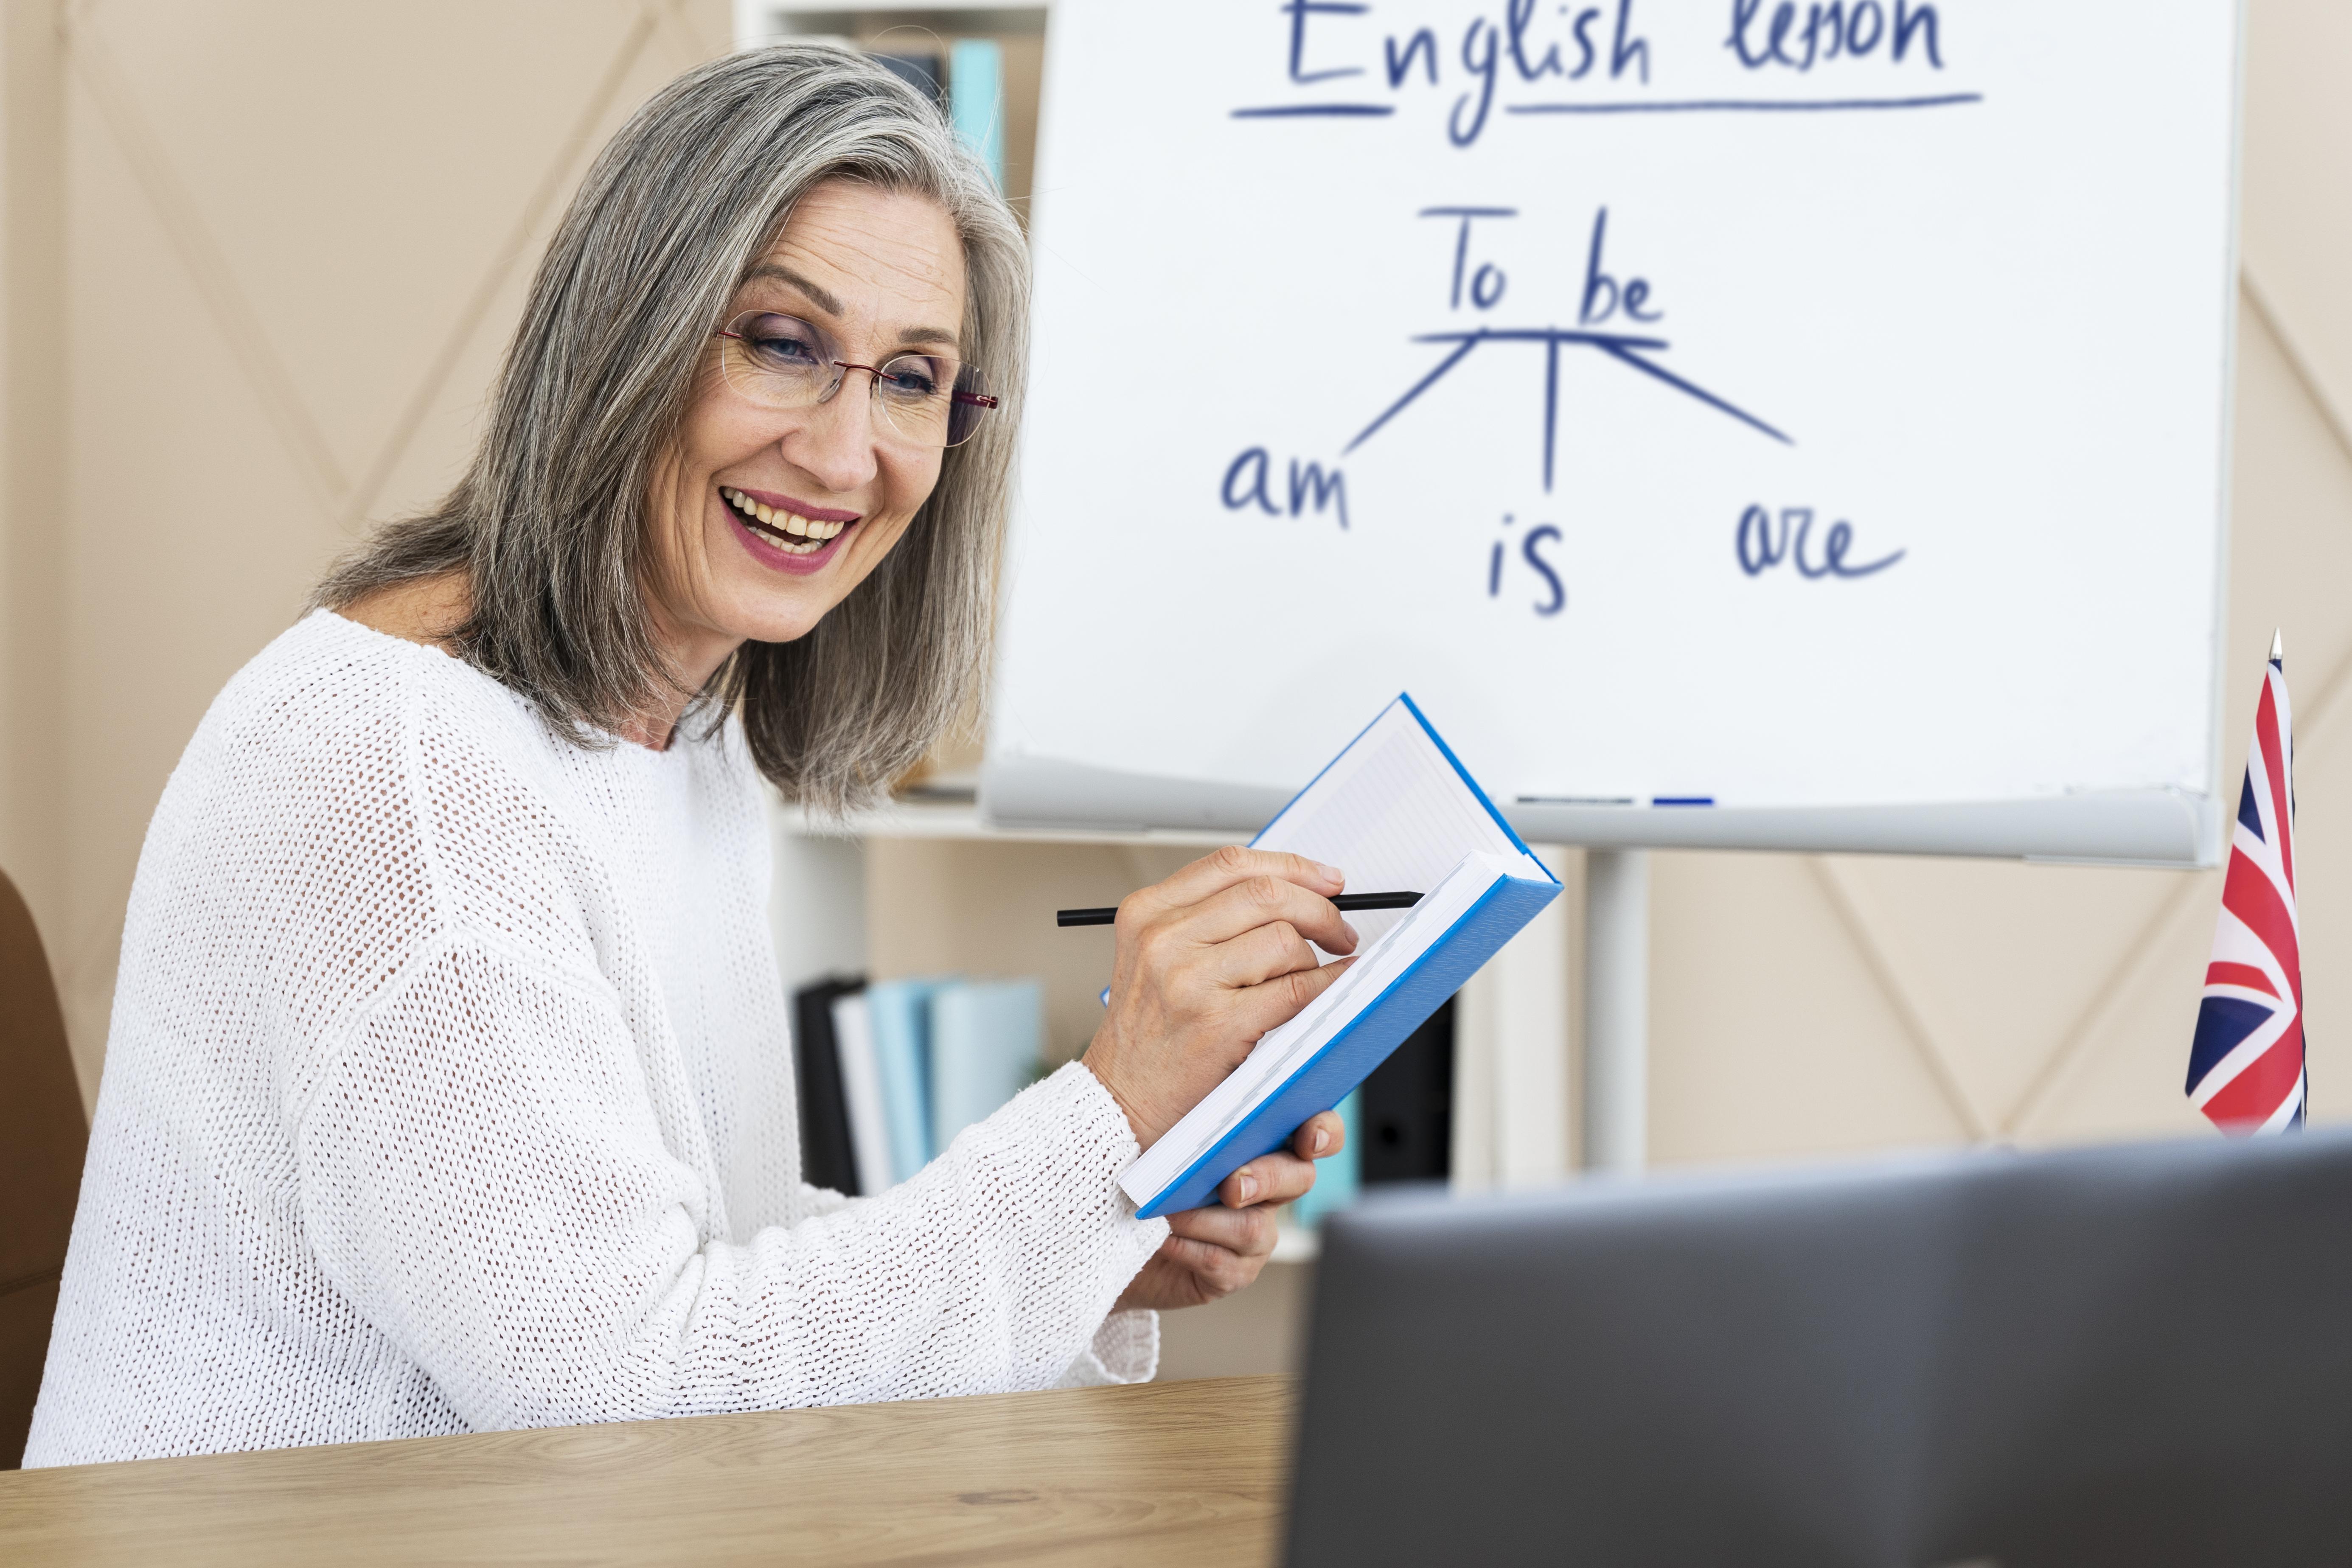 English lesson
To be
am is are